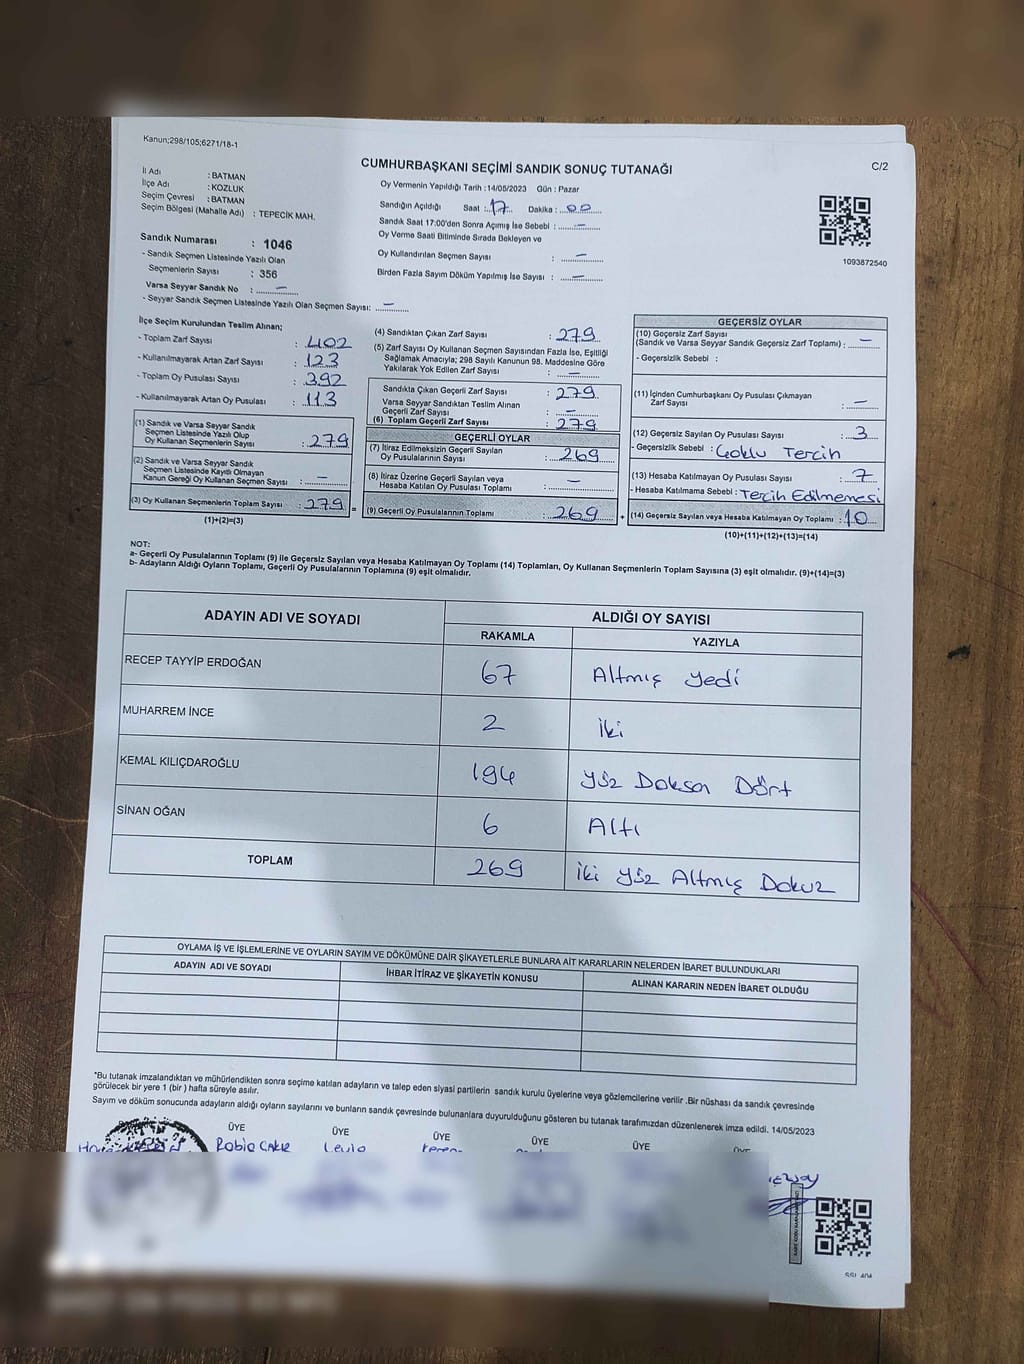 Kanun;298/105;6271/18-1
CUMHURBAŞKANI SEÇİMİ SANDIK SONUÇ TUTANAĞI
C/2
İl Adı : BATMAN
İlçe Adı : KOZLUK
Seçim Çevresi : BATMAN
Seçim Bölgesi (Mahalle Adı) : TEPECİK MAH.
Sandık Numarası : 1046
- Sandık Seçmen Listesinde Yazılı Olan
Seçmenlerin Sayısı : 356
Varsa Seyyar Sandık No : –
- Seyyar Sandık Seçmen Listesinde Yazılı Olan Seçmen Sayısı: –
Oy Vermenin Yapıldığı Tarih :14/05/2023 Gün : Pazar
Sandığın Açıldığı Saat :17 Dakika : 00
Sandık Saat 17:00'den Sonra Açımış İse Sebebi : –
Oy Verme Saati Bitiminde Sırada Bekleyen ve
Oy Kullandırılan Seçmen Sayısı : –
Birden Fazla Sayım Döküm Yapılmış İse Sayısı : –
1093872540
İlçe Seçim Kurulundan Teslim Alınan;
- Toplam Zarf Sayısı : 402
- Kullanılmayarak Artan Zarf Sayısı : 123
- Toplam Oy Pusulası Sayısı : 392
- Kullanılmayarak Artan Oy Pusulası : 113
(1) Sandık ve Varsa Seyyar Sandık
Seçmen Listesinde Yazılı Olup
Oy Kullanan Seçmenlerin Sayısı : 279
(2) Sandık ve Varsa Seyyar Sandık
Seçmen Listesinde Kayıtlı Olmayan
Kanun Gereği Oy Kullanan Seçmen Sayısı : –
(3) Oy Kullanan Seçmenlerin Toplam Sayısı : 279 =
(1)+(2)=(3)
(4) Sandıktan Çıkan Zarf Sayısı : 279
(5) Zarf Sayısı Oy Kullanan Seçmen Sayısından Fazla İse, Eşitliği
Sağlamak Amacıyla; 298 Sayılı Kanunun 98. Maddesine Göre
Yakılarak Yok Edilen Zarf Sayısı : –
Sandıkta Çıkan Geçerli Zarf Sayısı : 279
Varsa Seyyar Sandıktan Teslim Alınan
Geçerli Zarf Sayısı : –
(6) Toplam Geçerli Zarf Sayısı : 279
GEÇERLİ OYLAR
(7) İtiraz Edilmeksizin Geçerli Sayılan
Oy Pusulalarının Sayısı : 269
(8) İtiraz Üzerine Geçerli Sayılan veya
Hesaba Katılan Oy Pusulası Toplamı : –
(9) Geçerli Oy Pusulalarının Toplamı : 269 +
GEÇERSİZ OYLAR
(10) Geçersiz Zarf Sayısı
(Sandık ve Varsa Seyyar Sandık Geçersiz Zarf Toplamı) : –
- Geçersizlik Sebebi :
(11) İçinden Cumhurbaşkanı Oy Pusulası Çıkmayan
Zarf Sayısı : –
(12) Geçersiz Sayılan Oy Pusulası Sayısı : 3
- Geçersizlik Sebebi : Çoklu Tercih
(13) Hesaba Katılmayan Oy Pusulası Sayısı : 7
- Hesaba Katılmama Sebebi : Tercih Edilmemesi
(14) Geçersiz Sayılan veya Hesaba Katılmayan Oy Toplamı : 10
(10)+(11)+(12)+(13)=(14)
NOT:
a- Geçerli Oy Pusulalarının Toplamı (9) ile Geçersiz Sayılan veya Hesaba Katılmayan Oy Toplamı (14) Toplamları, Oy Kullanan Seçmenlerin Toplam Sayısına (3) eşit olmalıdır. (9)+(14)=(3)
b- Adayların Aldığı Oyların Toplamı, Geçerli Oy Pusulalarının Toplamına (9) eşit olmalıdır.
ADAYIN ADI VE SOYADI ALDIĞI OY SAYISI
RAKAMLA YAZIYLA
RECEP TAYYİP ERDOĞAN 67 Altmış Yedi
MUHARREM İNCE 2 İki
KEMAL KILIÇDAROĞLU 194 Yüz Doksan Dört
SİNAN OĞAN 6 Altı
TOPLAM 269 İki Yüz Altmış Dokuz
OYLAMA İŞ VE İŞLEMLERİNE VE OYLARIN SAYIM VE DÖKÜMÜNE DAİR ŞİKAYETLERLE BUNLARA AİT KARARLARIN NELERDEN İBARET BULUNDUKLARI
ADAYIN ADI VE SOYADI İHBAR İTİRAZ VE ŞİKAYETİN KONUSU ALINAN KARARIN NEDEN İBARET OLDUĞU
*Bu tutanak imzalandıktan ve mühürlendikten sonra seçime katılan adayların ve talep eden siyasi partilerin sandık kurulu üyelerine veya gözlemcilerine verilir .Bir nüshası da sandık çevresinde
görülecek bir yere 1 (bir ) hafta süreyle asılır.
Sayım ve döküm sonucunda adayların aldığı oyların sayılarını ve bunların sandık çevresinde bulunanlara duyurulduğunu gösteren bu tutanak tarafımızdan düzenlenerek imza edildi. 14/05/2023
ÜYE ÜYE ÜYE ÜYE ÜYE ÜYE